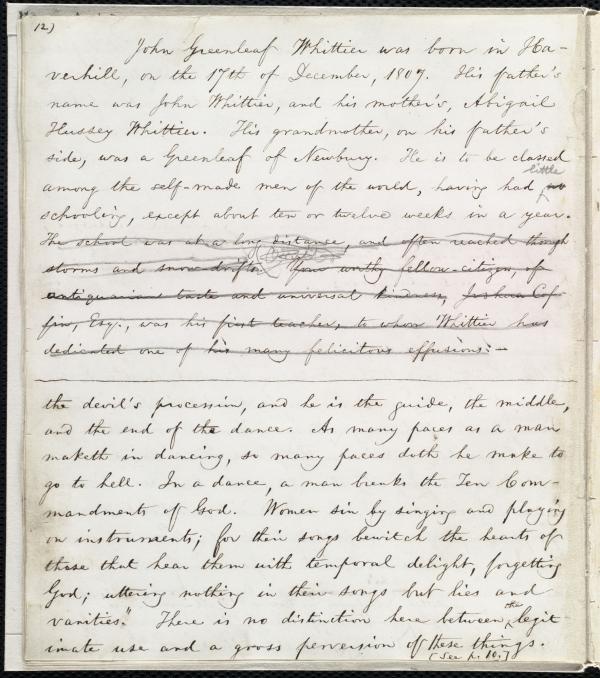 12)
John Greenleaf Whittier was born in Ha-
verhill, on the 17th of December, 1807. His father's
name was John Whittier, and his mother's, Abigail
Hussey Whittier. His grandmother, on his father's
side, was a Greenleaf of Newbury. He is to be classed
little
among the self-made men of the world, having had no
schooling, except about ten or twelve weeks in a year.
The school was at a long distance, and often reached though
storms and snow-drifts. Your worthy fellow-citizen, of
antiquarian taste and universal kindness, Joshua Cof-
fin, Esq., was his first teacher, to whom Whittier has
dedicated one of his many felicitous effusions:-
the devil's procession, and he is the guide, the middle,
and the end of the dance. As many paces as a man
maketh in dancing, so many paces doth he make to
go to hell. In a dance, a man breaks the Ten Com-
mandments of God. Women sin by singing and playing
on instruments; for their songs bewitch the hearts of
those that hear them with temporal delight, forgetting
God; uttering nothing in their songs but lies and
vanities." There is no distinction here between the legit-
imate use and a gross perversion of these things.
(See p. 10.)